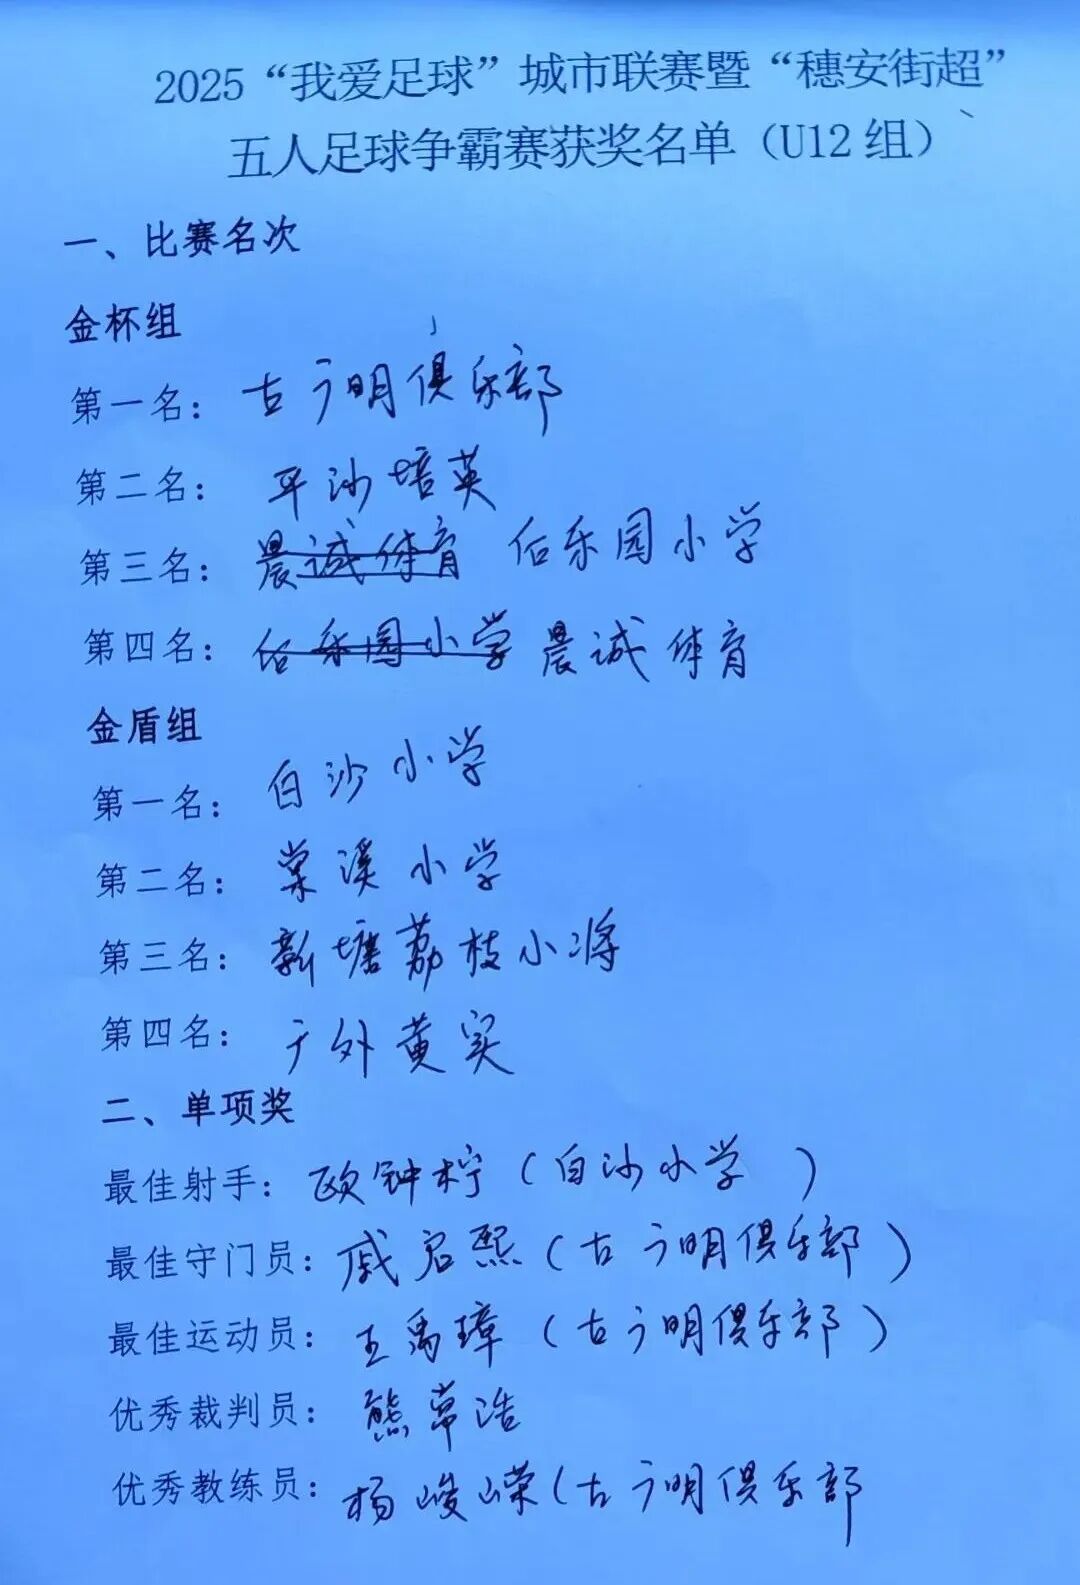 2025“我爱足球”城市联赛暨“穗安街超”
五人足球争霸赛获奖名单（U12组）
一、比赛名次
金杯组
第一名：古广明俱乐部
第二名：平沙培英
第三名：晨诚体育 伯乐园小学
第四名：伯乐园小学 晨诚体育
金盾组
第一名：白沙小学
第二名：棠溪小学
第三名：新塘荔枝小将
第四名：广外黄实
二、单项奖
最佳射手：欧钟柠（白沙小学）
最佳守门员：戚启熙（古广明俱乐部）
最佳运动员：王禹璋（古广明俱乐部）
优秀裁判员：熊常浩
优秀教练员：杨峻嵘（古广明俱乐部